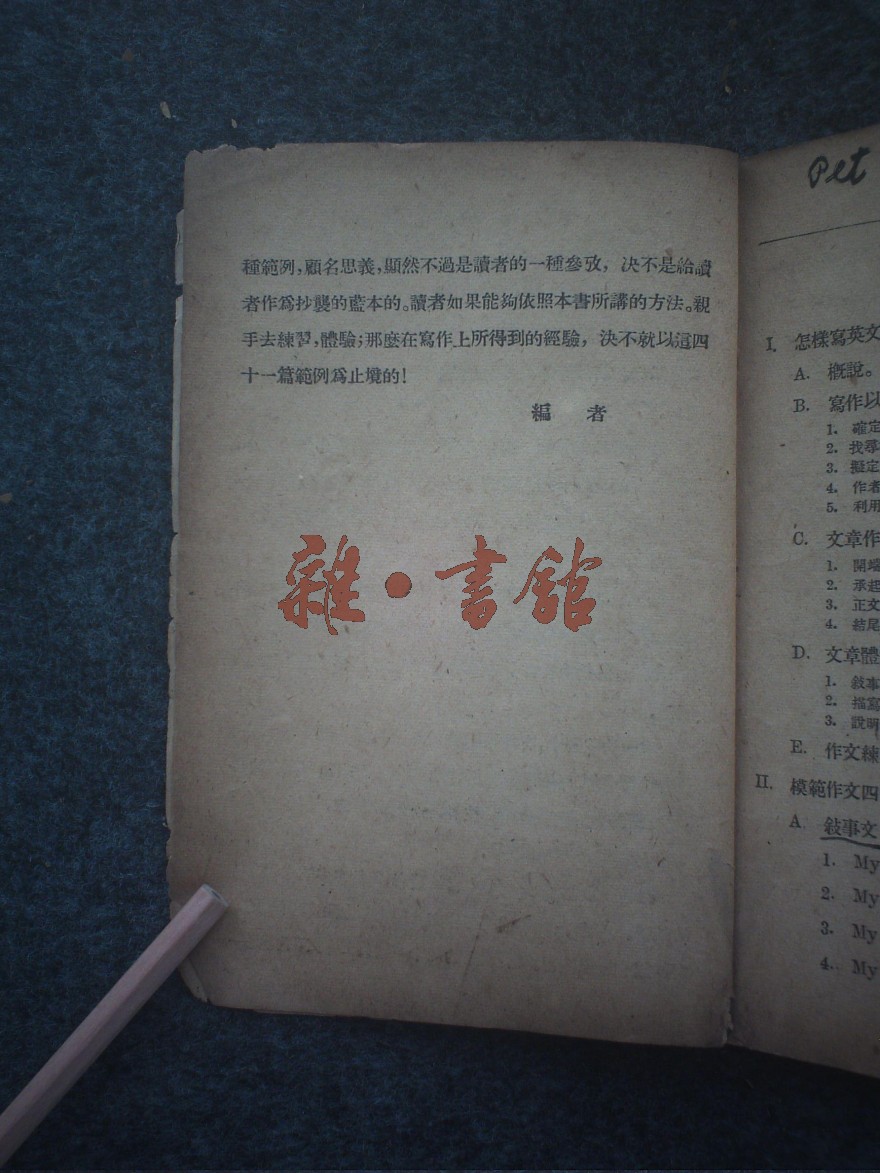 種範例，顧名思義，顯然不過是讀者的一種參攷，決不是給讀
者作爲抄襲的藍本的。讀者如果能夠依照本書所講的方法。親
手去練習，體驗；那麼在寫作上所得到的經驗，決不就以這四
十一篇範例爲止境的！
編 者
雜·書館
Pet
I. 怎樣寫英文
A. 概說。
B. 寫作以
1. 確定
2. 找尋
3. 擬定
4. 作者
5. 利用
C. 文章作
1. 開端
2. 承起
3. 正文
4. 結尾
D. 文章體
1. 敍事
2. 描寫
3. 說明
E. 作文練
II. 模範作文四
A. 敍事文
1. My
2. My
3. My
4. My